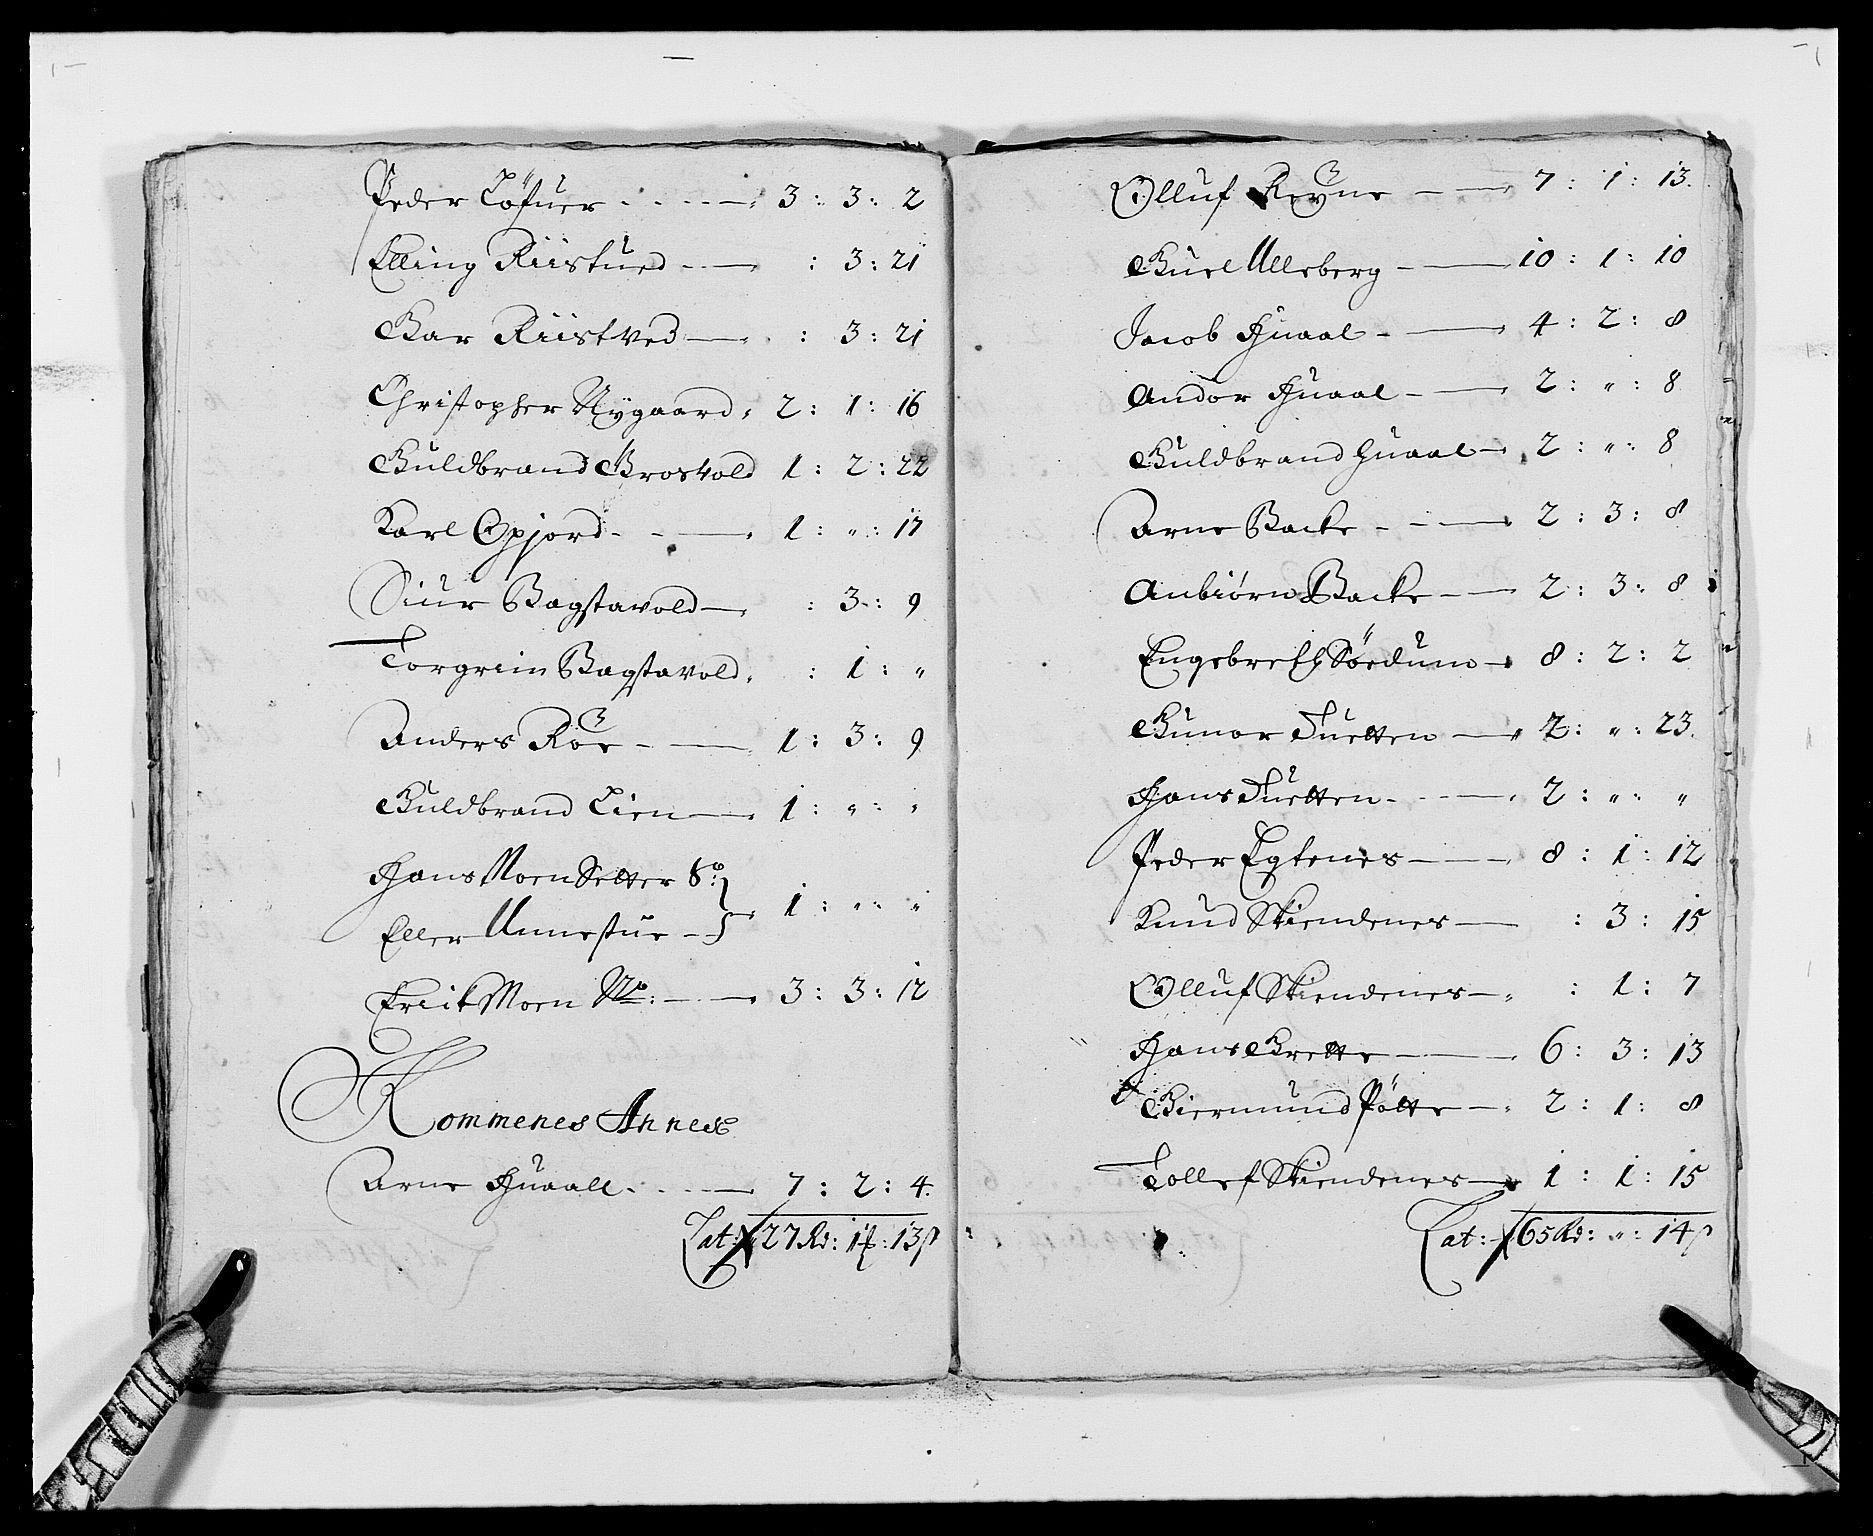 Peder Löfuer - - - - - 3 : 3 : 2
Elling Riistued - - - : 3 : 21
Gar Riistved - : 3 : 21
Christopher Nygaard, 2 : 1 : 16
Guldbrand Brosvold 1 : 2 : 22
Karl Opjord - - - 1 : " : 17
Siur Bagstavold - : 3 : 9
Torgriim Bagstavold, : 1 : "
Anders Röe - - 1 : 3 : 9
Guldbrand Lien - 1 : " : "
Hans Moen Setter S°: }
Eller Unnestue - } 1 : " : "
Erick Moen N°: - - 3 : 3 : 12
Kommenes Annex
Arne Huaall - - - 7 : 2 : 4.
Lat: 27 Rd: 1 f: 13 ß
Olluf Reyne - - 7 : 1 : 13.
Guel Ullsberg - - 10 : 1 : 10
Jacob Huaal - - 4 : 2 : 8
Andor Huaal - - 2 : " : 8
Guldbrand Huaal - 2 : " : 8
Arne Backe - - - 2 : 3 : 8
Anbiørn Backe - - 2 : 3 : 8
Engebreth Sördum - 8 : 2 : 2
Gunor Tuetten - 2 : " : 23.
Hans Tuetten - - - 2 : " : "
Peder Egtenes - - 8 : 1 : 12
Knud Skiendenes - : 3 : 15
Olluf Skiendenes - : 1 : 7
Hans Grette - - 6 : 3 : 13
Giermund Pötte - 2 : 1 : 8
Tollef Skiendenes - 1 : 1 : 15
Lat: 65 Rd: " : 14 ß